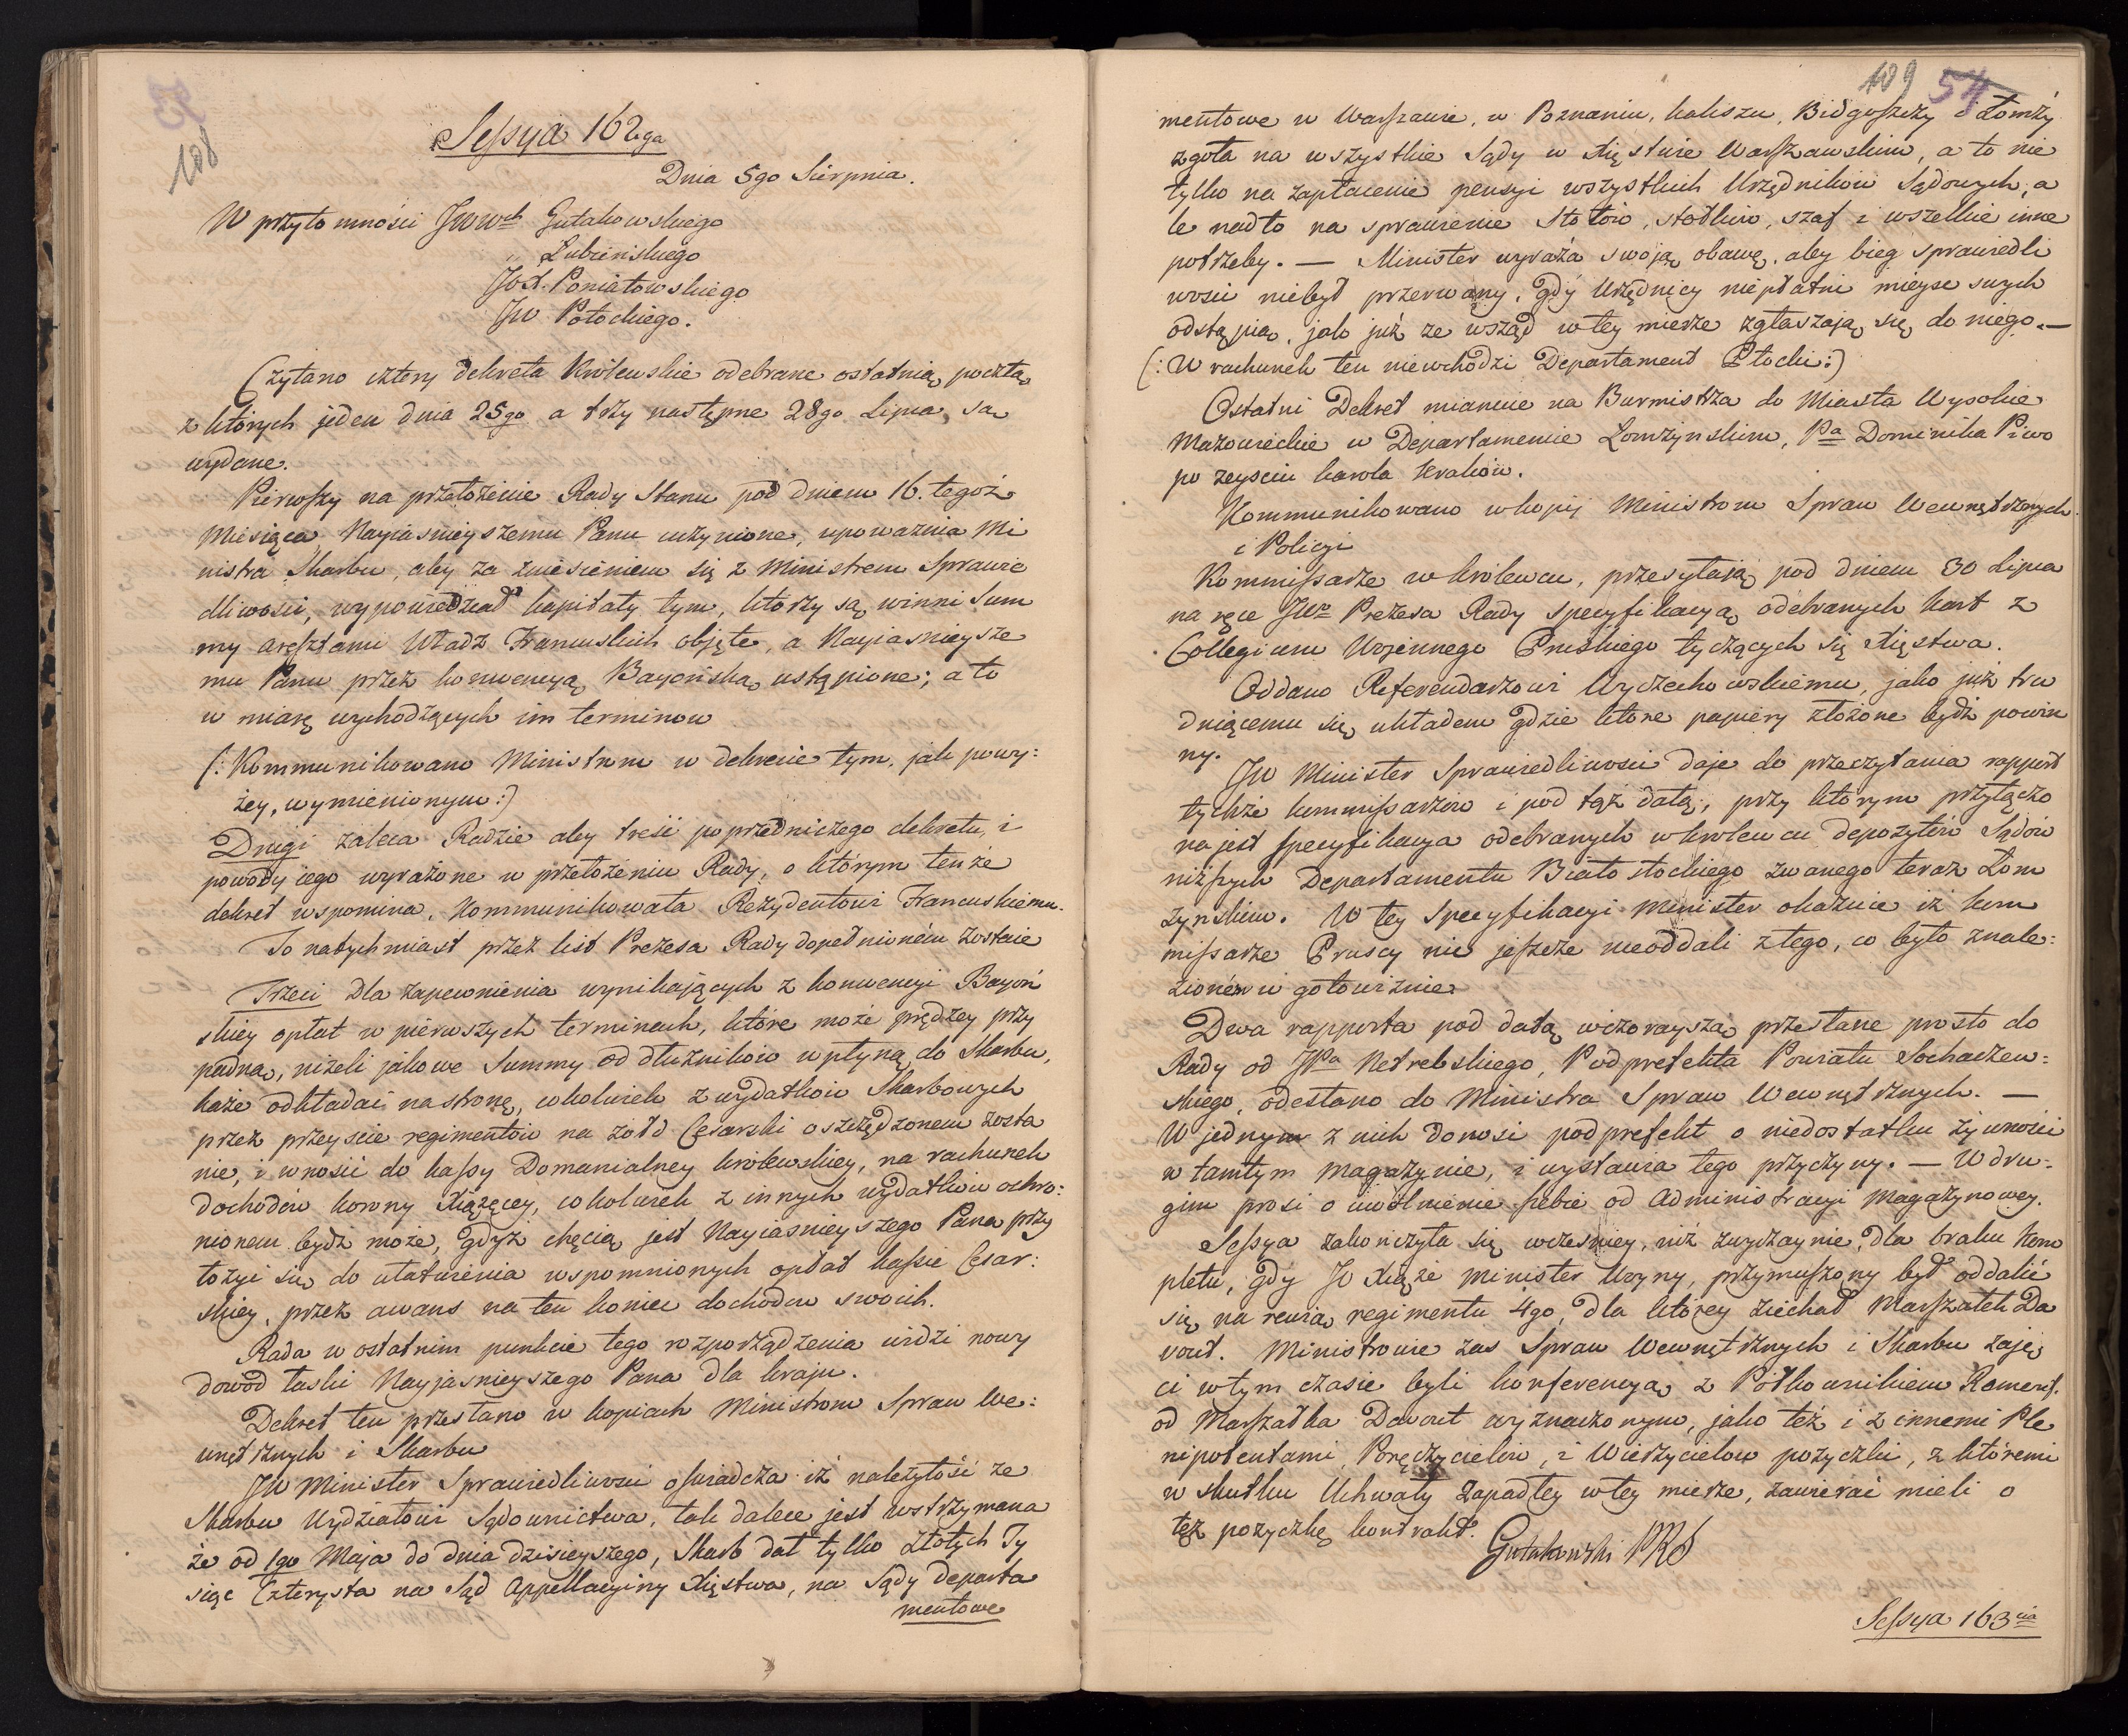 53
108
Sessya 162ga
Dnia 5go Sierpnia.
W przytomności JWWch Gutakowskiego
„ Łubieńskiego
JOX. Poniatowskiego
JW Potockiego.
Czytano cztery dekreta Królewskie odebrane ostatnią pocztą
z których jeden dnia 25go a trzy następne 28go Lipca są
wydane.
Pierwszy na przełożenie Rady Stanu pod dniem 16. tegoż
Miesiąca Nayiaśnieyszemu Panu uczynione, upoważnia Mi
nistra Skarbu, aby za zniesieniem się z Ministrem Sprawie
dliwości, wypowiedział kapitały tym, którzy są winni Sum
my aresztami Władz Francuskich objęte, a Nayiaśnieysze
mu Panu przez konwencyą Bayońską ustąpione; a to
w miarę wychodzących im terminow
(: Kommunikowano Ministrom w dekrecie tym, jak powy:
żey, wymienionym :)
Drugi zaleca Radzie aby treść poprzedniczego dekretu, i
powody iego wyrażone w przełożeniu Rady, o którym tenże
dekret wspomina, Kommunikowała Rezydentowi Francuskiemu.
To natychmiast przez list Prezesa Rady dopełnioném zostaie
Trzeci dla zapewnienia wynikających z konwencyi Bayoń
skiey opłat w pierwszych terminach, które może prędzey przy
padną, niżeli jakowe Summy od dłużników wpłyną do Skarbu,
każe odkładać na stronę, cokolwiek z wydatków Skarbowych
przez przeyście regimentów na żołd Cesarski oszczędzonem zosta
nie, i wnosić do kassy Domanialney królewskiey, na rachunek
dochodów korony Xiążęcey, cokolwiek z innych wydatków ochro:
nionem bydź może, gdyż chęcią jest Nayiaśnieyszego Pana przy
łożyć się do ułatwienia wspomnionych opłat kassie Cesar:
skiey, przez awans na ten koniec dochodów swoich.
Rada w ostatnim punkcie tego rozporządzenia widzi nowy
dowod łaski Nayjaśnieyszego Pana dla kraju.
Dekret ten przesłano w kopiach Ministrom Spraw We:
wnętrznych i Skarbu
JW Minister Sprawiedliwości oświadcza iż należytość ze
Skarbu Wydziałowi Sądownictwa, tak dalece jest wstrzymana
że od 1go Maja do dnia dzisieyszego, Skarb dał tylko Złotych Ty
siąc Czterysta na Sąd Appellacyiny Xięstwa, na Sądy Departa
mentowe
109 54
mentowe w Warszawie, w Poznaniu, Kaliszu, Bidgoszczy i Łomży
zgoła na wszystkie Sądy w Xięstwie Warszawskim, a to nie
tylko na zapłacenie pensyi wszystkich Urzędników Sądowych, a
le nadto na sprawienie stołów, stołków, szaf i wszelkie inne
potrzeby. — Minister wyraża swoją obawę, aby bieg sprawiedli
wości niebył przerwany, gdy Urzędnicy niepłatni mieysc swych
odstąpią, jako już ze wsząd w tey mierze zgłaszają się do niego. —
(: W rachunek ten niewchodzi Departament Płocki :)
Ostatni Dekret mianuie na Burmistrza do Miasta Wysokie
Mazowieckie w Departamencie Łomżyńskim, Pa Dominika Piwo
po zeyściu Karola Kraków.
Kommunikowano w kopij Ministrom Spraw Wewnętrznych
i Policyi
Kommissarze w królewcu, przesyłają pod dniem 30 Lipca
na ręce JWo Prezesa Rady specyfikacyą odebranych kart z
Collegium Wojennego Pruskiego tyczących się Xięstwa.
Oddano Referendarzowi Wyczechowskiemu, jako już tru
dniącemu się układem gdzie które papiery złożone bydź powin
ny.
JW Minister Sprawiedliwości daje do przeczytania rapport
tychże kommissarzów i pod tąż datą, przy którym przyłączo
na jest specyfikacya odebranych w królewcu depozytów Sądów
niższych Departamentu Białostockiego zwanego teraz Łom
żyńskim. W tey specyfikacyi Minister okazuie iż kom
missarze Pruscy nic jeszcze nieoddali z tego, co było znale:
zioném w gotowiźnie.
Dwa rapporta pod datą wczorayszą przesłane prosto do
Rady od JPa Netrebskiego, Podprefekta Powiatu Sochaczew:
skiego, odesłano do Ministra Spraw Wewnętrznych. —
W jednym z nich donosi podprefekt o niedostatku żywności
w tamtym magazynie, i wystawia tego przyczyny. — W dru:
gim prosi o uwolnienie siebie od Administracyi Magazynowey.
Sessya zakończyła się wcześniey, niż zwyczaynie, dla braku Kom
pletu, gdy JO Xiąże Minister Woyny, przymuszony był oddalić
się na rewią regimentu 4go, dla którey ziechał Marszałek Da
vout. Ministrowie zas Spraw Wewnętrznych i Skarbu zaję
ci w tym czasie byli konferencyą z Półkownikiem
od Marszałka Davout wyznaczonym, jako też i z innemi Ple
nipotentami, Poręczycielów, i Wierzycielow pożyczki, z któremi
w skutku Uchwały zapadłey w tey mierze, zawierać mieli o
tęż pożyczkę kontrakt.
Gutakowski PRS
Sessya 163cia